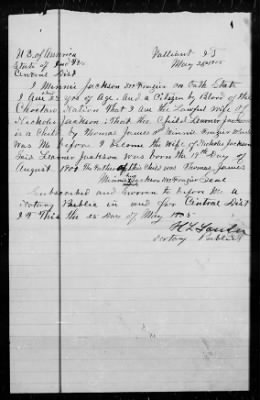 U.S. of America Valliant I.T.
State of Ind Ter May 22 1905
Central Dist
I Minnie Jackson nee Frazier on Oath State
I am 22 years of Age. And a Citizen by Blood of the
Choctaw Nation That I am the Lawful Wife of
Nicholas Jackson: That the Child Learner Jackson
is a Child by Thomas James and Minnie Frazier which
was Me before I become the Wife of Nicholas Jackson
Said Learner Jackson was born the 19th Day of
August 1904 The Father of this Child was Thomas James
Minnie Jackson nee Frazier Seal
Subscribed and Sworn to before Me a
Notary Public in and for Central Dist
I.T. This the 22 Day of May 1905
Notary Public